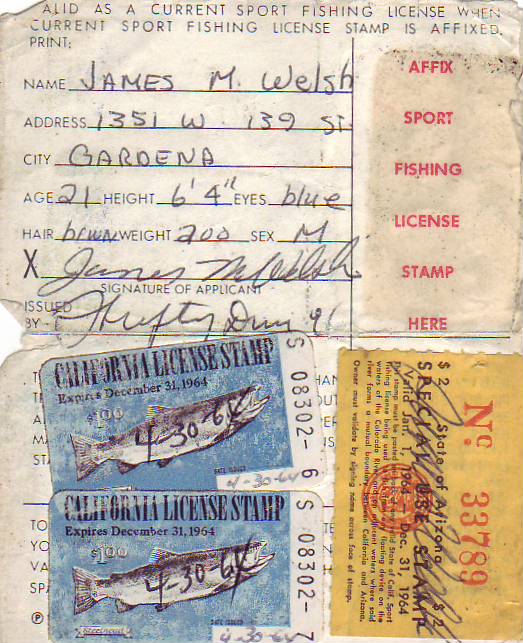 ALID AS A CURRENT SPORT FISHING LICENSE WHEN
CURRENT SPORT FISHING LICENSE STAMP IS AFFIXED.
PRINT;
NAME JAMES M. Welsh
ADDRESS 1351 W. 139 ST.
CITY GARDENA
AGE 21 HEIGHT 6'4" EYES blue
HAIR brwn WEIGHT 200 SEX M
X James M Welsh
SIGNATURE OF APPLICANT
ISSUED
BY - Thrifty
AFFIX
SPORT
FISHING
LICENSE
STAMP
HERE
CALIFORNIA LICENSE STAMP
Expires December 31, 1964
$1.00
4-30-64
DATE ISSUED
4-30-64
S 08302-6
CALIFORNIA LICENSE STAMP
Expires December 31, 1964
$1.00
4-30-64
Steelhead
DATE ISSUED
4-30-64
S 08302-7
$2 State of Arizona $2
SPECIAL USE STAMP
Valid Jan. 1, 1964 - Dec. 31 1964
river forms a mutual boundary between California and Arizona.
Owner must validate by signing name across face of stamp.
No 33789
TO
YO
VO
AN
SPA
P